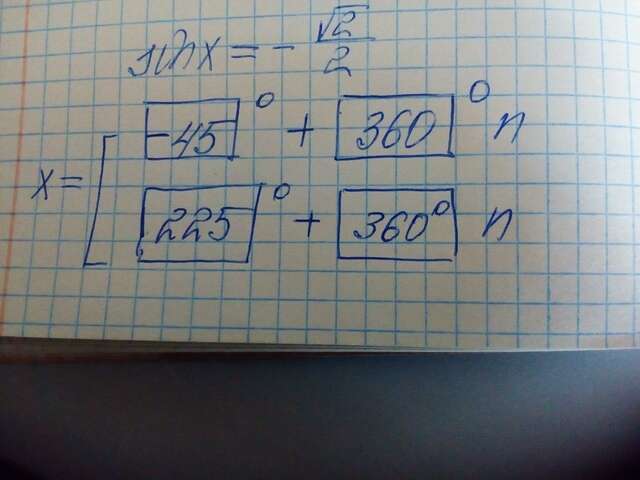 sin x = - √2/2
x = [ -45° + 360° n
225° + 360° n